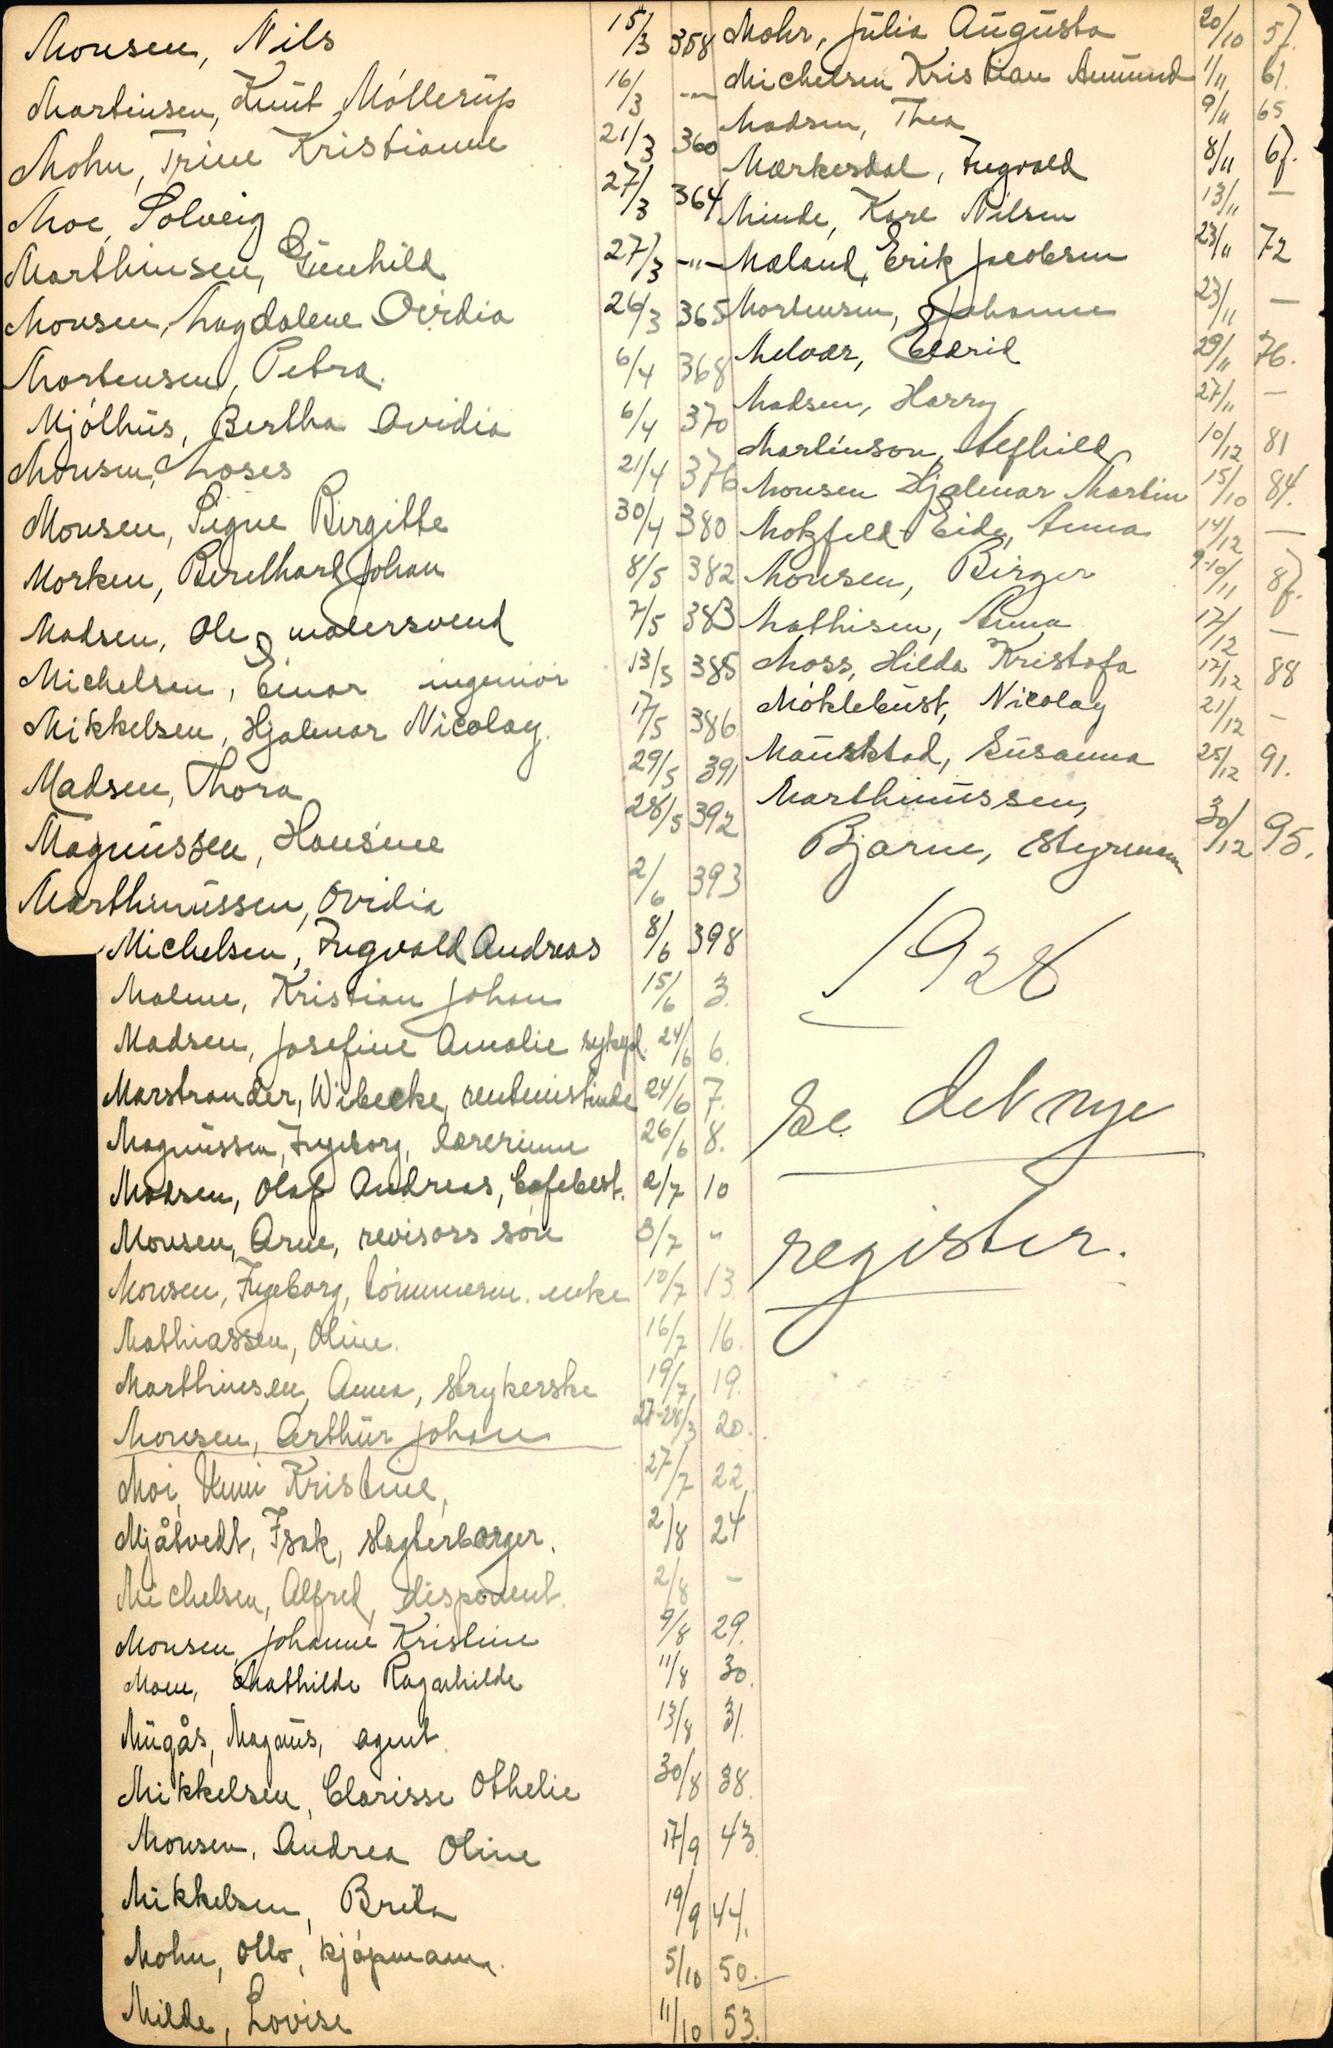 Monsen, Nils 15/3 358
Martinsen, Knut Möllerup 16/3 -"-
Mohn, Trine Kristianne 21/3 360
Moe, Solveig 27/3 364
Marthinsen, Gunhild 27/3 -"-
Monsen, Magdalene Ovidia 26/3 365
Mortensen, Petra. 6/4 368
Mjölhus, Bertha Ovidia 6/4 370
Monsen, Moses 21/4 376
Monsen, Signe Birgitte 30/4 380
Morken, Berelhard Johan 8/5 382
Madsen, Ole, malersvend 7/5 383
Michelsen, Einar ingeniör 13/5 385
Mikkelsen, Hjalmar Nicolay. 17/5 386
Madsen, Thora 29/5 391
Magnussen, Hansine 28/5 392
Marthinussen, Ovidia 2/6 393
Michelsen, Ingvald Andreas 8/6 398
Malme, Kristian Johan 15/6 3.
Madsen, Josefine Amalie sykepl. 24/6 6.
Marstrander, Wibecke, rentenistinde 24/6 7.
Magnussen, Ingeborg, lærerinne 26/6 8.
Madsen, Olaf Andreas, Cafebest. 2/7 10
Monsen, Arne, revisors sön 8/7 "
Monsen, Ingeborg, tömmerm. enke 10/7 13.
Mathiassen, Oline. 16/7 16.
Marthinsen, Anna, strykerske 19/7 19.
Monsen, Arthur Johan 27-28/3 20.
Moi, Unni Kristine, 27/7 22
Mjåtvedt, Isak, slagterborger. 2/8 24
Michelsen, Alfred, disponent. 2/8 -
Monsen, Johanne Kristine 9/8 29.
Moen, Mathilde Ragnhilde 11/8 30.
Mugås, Magnus, agent. 13/8 31.
Mikkelsen, Clarisse Othelie 30/8 38.
Monsen, Andrea Oline 17/9 43.
Mikkelsen, Brita 19/9 44.
Mohn, Otto, kjöpmann. 5/10 50.
Milde, Lovise 11/10 53.
Mohr, Julia Augusta 20/10 57.
Michelsen Kristian Amund 1/11 61.
Madsen, Thea 9/11 65
Markesdal, Ingvald 8/11 67.
Minde, Kare Nilsen 13/11 —
Maland, Erik Jacobsen 23/11 72
Mortensen, Johanne 23/11 —
Melvær, Eldrid 29/11 76.
Madsen, Harry 27/11 —
Martinson, Alfhild 10/12 81
Monsen Hjalmar Martin 15/10 84.
Motzfeld Eide, Anna 14/12 —
Monsen, Birger 9-10/11 87.
Mathisen, Anna 17/12 —
Moss, Hilda Kristofa 17/12 88
Möklebust, Nicolay 21/12 -
Maurstad, Susanna 25/12 91.
Marthinussen,
Bjarne, styrmann 30/12 95.
1928
se det nye
register.